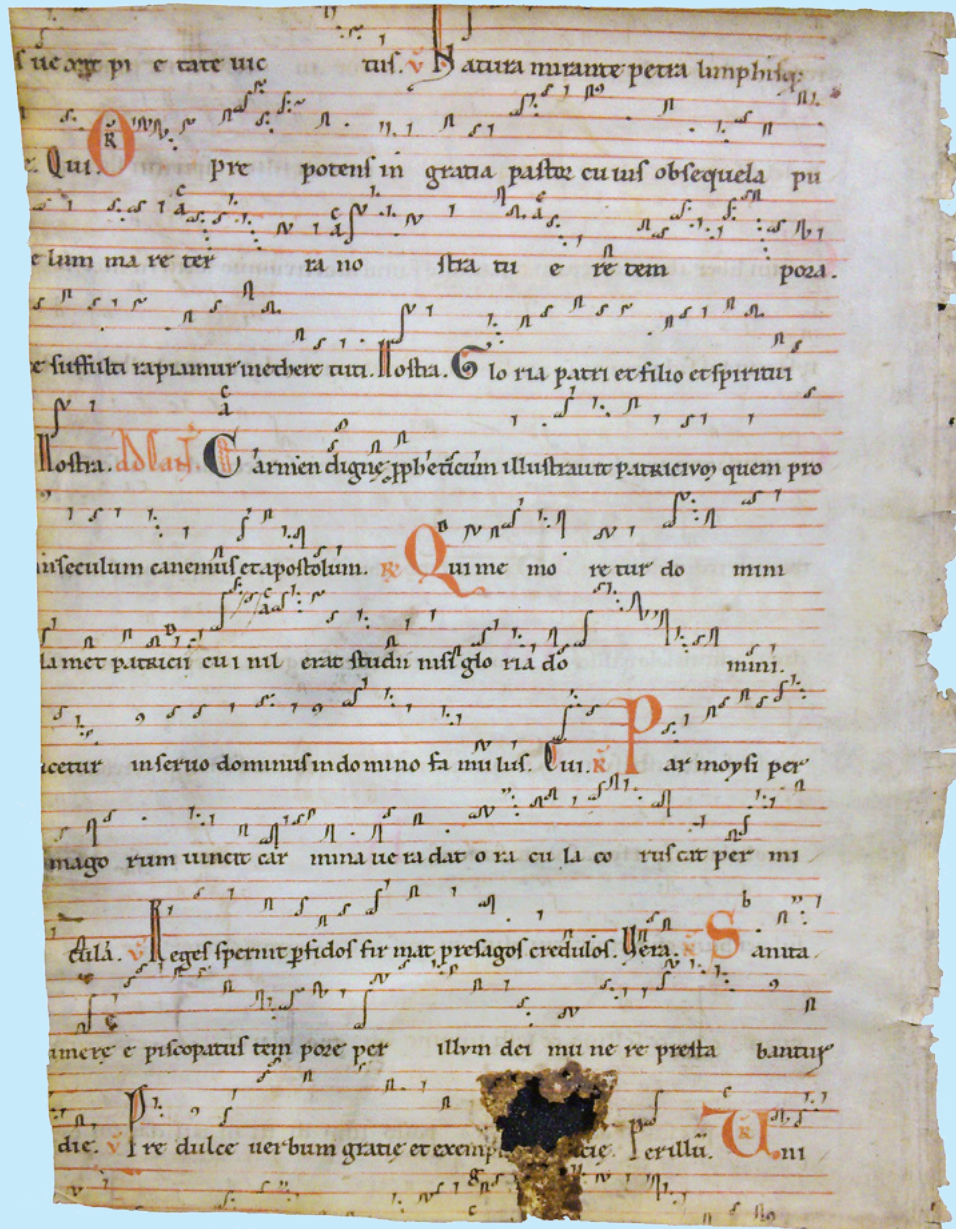 pi e tate uic tus. v Natura mirante petra limphisq;
Qui. O R pre potens in gratia pastor cu ius obsequela pu
lum ma re ter ra no stra tu e re tem pora.
suffulti rapiamur methere tuti. Nostra. Glo ria patri et filio et spiritui
Nostra. Ad Laud. Carmen digne ppheticum illustrauit patricivm quem pro
in seculum canemus et apostolum. R Qui me mo re tur do mini
la met patricii cu i nil erat studii nisi glo ria do mini.
icetur in seruo dominus in domino fa mu lus. Qui. R Par moysi per
mago rum uincit car mina ue ra dat o ra cu la co ruscat per mi
cula. v Reges spernit pfidos fir mat presagos credulos. Vera. R Sanita
amere e piscopatus tem pore per illvm dei mu ne re presta bantur
die. v Pre dulce uerbum gratie et exemp Per illu. R Uni